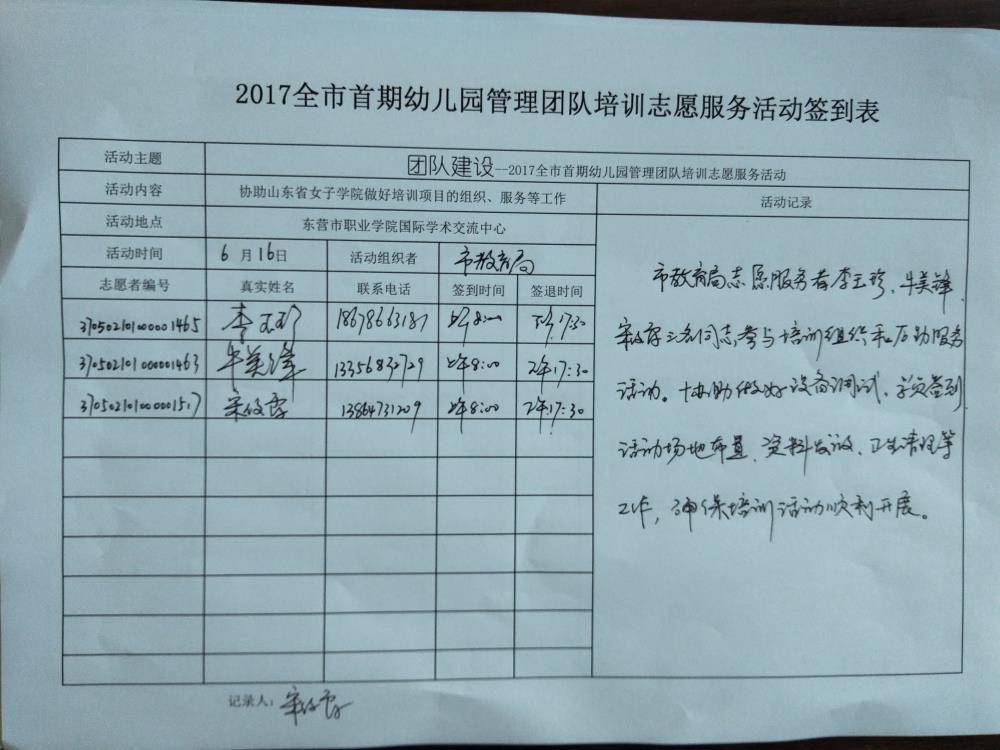 2017全市首期幼儿园管理团队培训志愿服务活动签到表
活动主题 团队建设--2017全市首期幼儿园管理团队培训志愿服务活动
活动内容 协助山东省女子学院做好培训项目的组织、服务等工作 活动记录
活动地点 东营市职业学院国际学术交流中心
活动时间 6月16日 活动组织者 市教育局
志愿者编号 真实姓名 联系电话 签到时间 签退时间
3705021010000001465 李玉珍 18678663187 上午8:00 下午17:30
3705021010000001463 牛美锋 13356832729 上午8:00 下午17:30
3705021010000001517 13864731209 上午8:00 下午17:30
市教育局志愿服务者李玉珍、牛美锋、
三名同志参与培训组织和后勤服务
活动。协助做好设备调试、学员签到
活动场地布置、资料发放、卫生清理等
工作,确保培训活动顺利开展。
记录人: